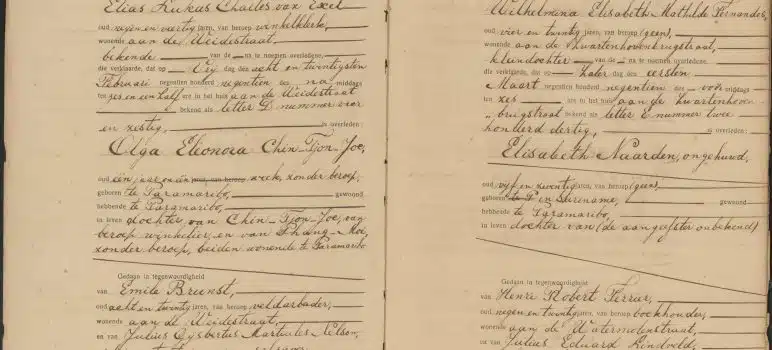 Elias Lukas Charles van Exel
oud negen en veertig jaren, van beroep winkelklerk,
wonende aan de Weidestraat,
bekende van de na te noemen overledene,
die verklaarde, dat op Vrij dag den acht en twintigsten
Februari negentien honderd negentien des na middags
ten zes en een half ure in het huis aan de Weidestraat
bekend als letter D nummer vier
en zestig, is overleden:
Olga Eleonora Chin-Tjon-Joe,
oud één jaar en één week, zonder beroep,
geboren te Paramaribo, gewoond
hebbende te Paramaribo,
in leven dochter van Chin-Tjon-Joe, van
beroep winkelier, en van Phang-Moe,
zonder beroep, beiden wonende te Paramaribo
Gedaan in tegenwoordigheid
van Emile Brunst,
oud acht en twintig jaren, van beroep veldarbeider,
wonende aan de Weidestraat,
en van Julius Gysbertus Nelson,
Wilhelmina Elisabeth Mathilde Fernandes,
oud vier en twintig jaren, van beroep (geen),
wonende aan de Zwartenhovenbrugstraat,
kleindochter van de na te noemen overledene,
die verklaarde, dat op Zater dag den eersten
Maart negentien honderd negentien des voor middags
ten zes ure in het huis aan de Zwartenhoven-
brugstraat bekend als letter E nummer twee
honderd dertig, is overleden:
Elisabeth Naarden, ongehuwd,
oud vijf en zeventig jaren, van beroep (geen),
geboren in Suriname, gewoond
hebbende te Paramaribo,
in leven dochter van (de aangeefster onbekend)
Gedaan in tegenwoordigheid
van Henri Robert Ferrar,
oud negen en twintig jaren, van beroep boekhouder,
wonende aan de Watermolenstraat,
en van Julius Eduard Lindveld,